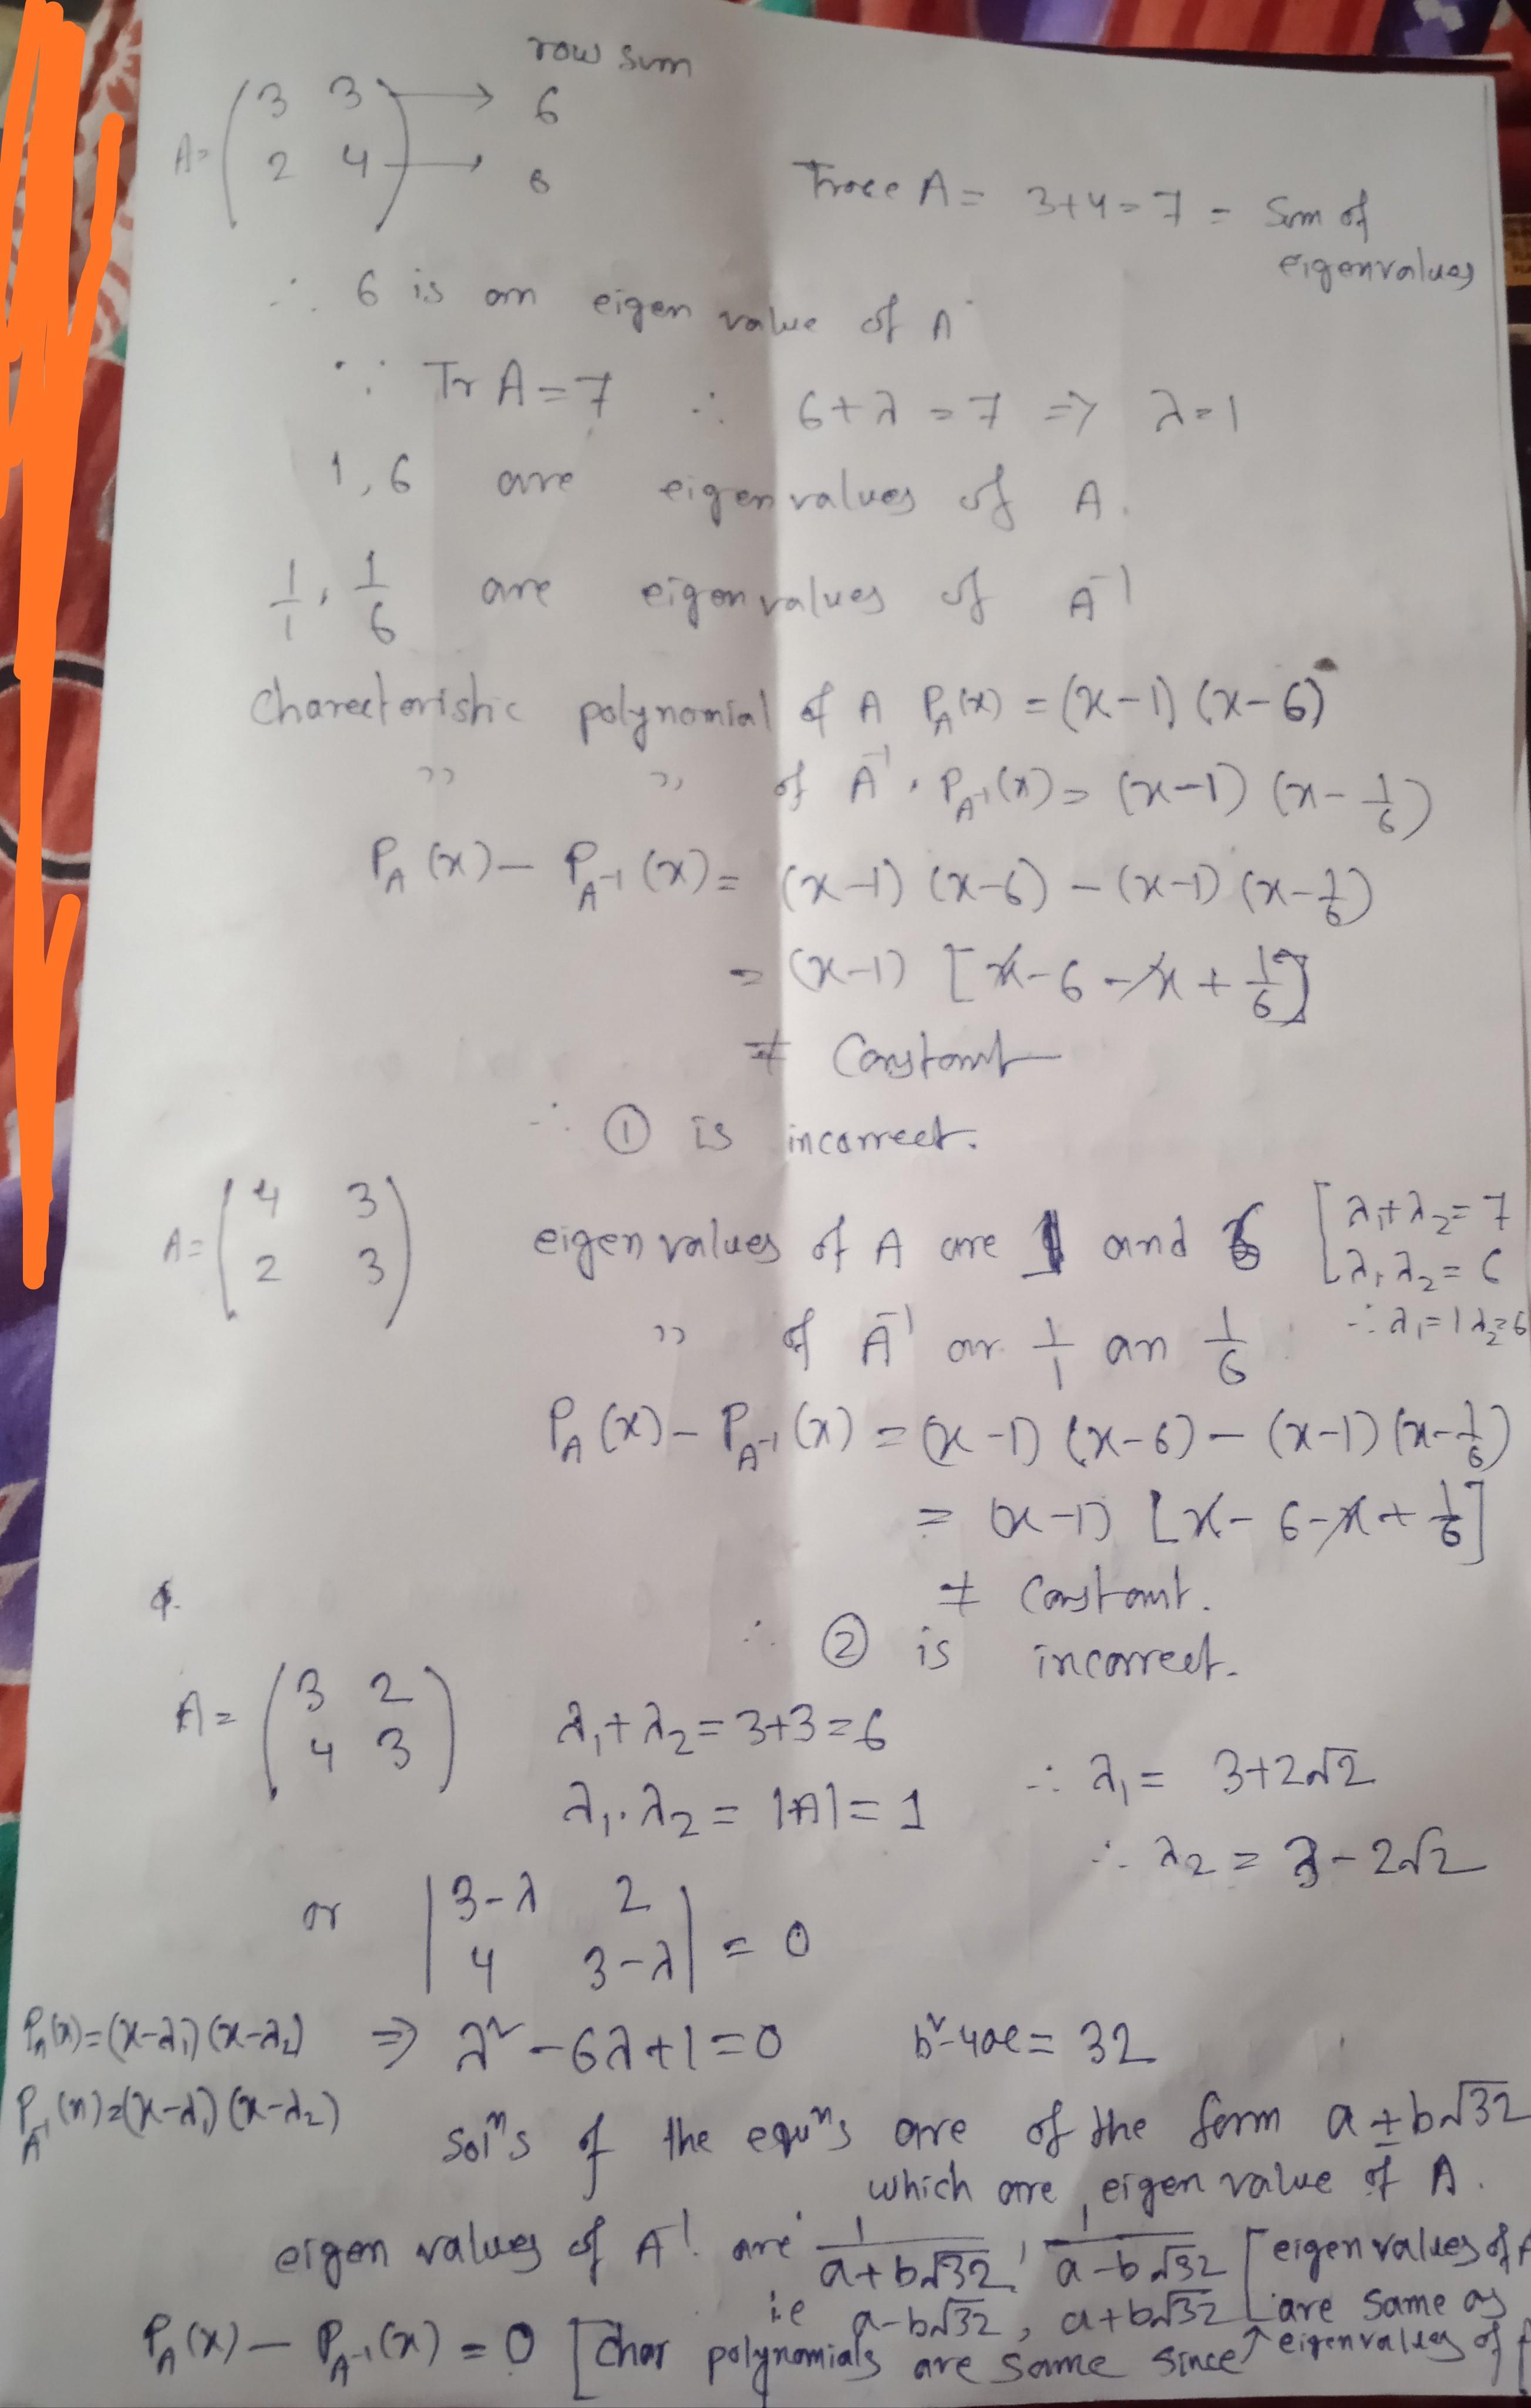 row sum
A= (3 3) → 6
(2 4) → 6
Trace A = 3+4=7 = Sum of
eigenvalues
∴ 6 is an eigen value of A
∵ Tr A=7 ∴ 6+λ=7 ⇒ λ=1
1,6 are eigenvalues of A.
1/1, 1/6 are eigenvalues of A⁻¹
Charecteristic polynomial of A P_A(x) = (x-1)(x-6)
" " of A⁻¹, P_A⁻¹(x) = (x-1)(x-1/6)
P_A(x) - P_A⁻¹(x) = (x-1)(x-6) - (x-1)(x-1/6)
= (x-1)[x-6-x+1/6]
≠ Constant
∴ ① is incorrect.
A= (4 3)
(2 3)
eigen values of A are 1 and 6 [λ₁+λ₂=7
λ₁λ₂=6
" of A⁻¹ ar 1/1 an 1/6 ∴ λ₁=1 λ₂=6
P_A(x) - P_A⁻¹(x) = (x-1)(x-6) - (x-1)(x-1/6)
= (x-1)[x-6-x+1/6]
≠ Constant.
∴ ② is incorrect.
A= (3 2)
(4 3)
λ₁+λ₂=3+3=6
λ₁.λ₂ = |A| = 1
∴ λ₁ = 3+2√2
∴ λ₂ = 3-2√2
or |3-λ 2|
|4 3-λ| = 0
P_A(x)=(x-λ₁)(x-λ₂)
⇒ λ²-6λ+1=0 b²-4ac = 32
P_A⁻¹(x)=(x-λ₁)(x-λ₂)
solⁿs of the equⁿs are of the form a±b√32
which are eigen value of A.
eigen values of A⁻¹. are 1/(a+b√32), 1/(a-b√32) [eigenvalues of
i.e a-b√32, a+b√32 are same as
eigenvalues of
P_A(x) - P_A⁻¹(x) = 0 [char polynomials are same since